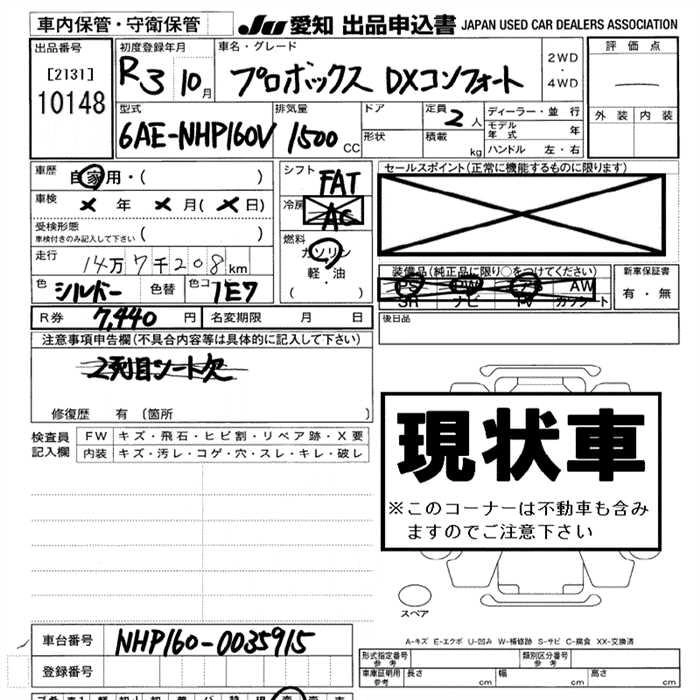 車内保管・守衛保管 JU 愛知 出品申込書 JAPAN USED CAR DEALERS ASSOCIATION
出品番号 初度登録年月 車名・グレード 2WD・4WD 評価点
[2131] R3 10月 プロボックス DXコンフォート
10148 外装 内装
型式 排気量 ドア 定員 2人 ディーラー・並行
6AE-NHP160V 1500cc 形状 積載 kg モデル年式 年
ハンドル 左・右
車歴 自家用・( ) シフト FAT セールスポイント(正常に機能するものに限ります)
車検 × 年 × 月(× 日) 冷房 AC
受検形態 車検付きのみ記入して下さい ( ) 燃料 ガソリン
走行 14万7千208km 軽・油 装備品(純正品に限り○をつけてください) 新車保証書
色 シルバー 色替 色コ 1E7 ( ) PS PW エアB AW 有・無
SR ナビ TV カセット
R券 7,440円 名変期限 月 日 後日品
注意事項申告欄(不具合内容等は具体的に記入して下さい)
2列目シート欠
修復歴 有(箇所 )
現状車
※このコーナーは不動車も含みますのでご注意下さい
検査員記入欄 FW キズ・飛石・ヒビ割・リペア跡・X要
内装 キズ・汚レ・コゲ・穴・スレ・キレ・破レ
スペア
A-キズ E-エクボ U-凹み W-補修跡 S-サビ C-腐食 XX-交換済
車台番号 NHP160-0035915
登録番号
形式指定番号 参考 類別区分番号 参考
車庫証明用 参考 長さ cm 幅 cm 高さ cm